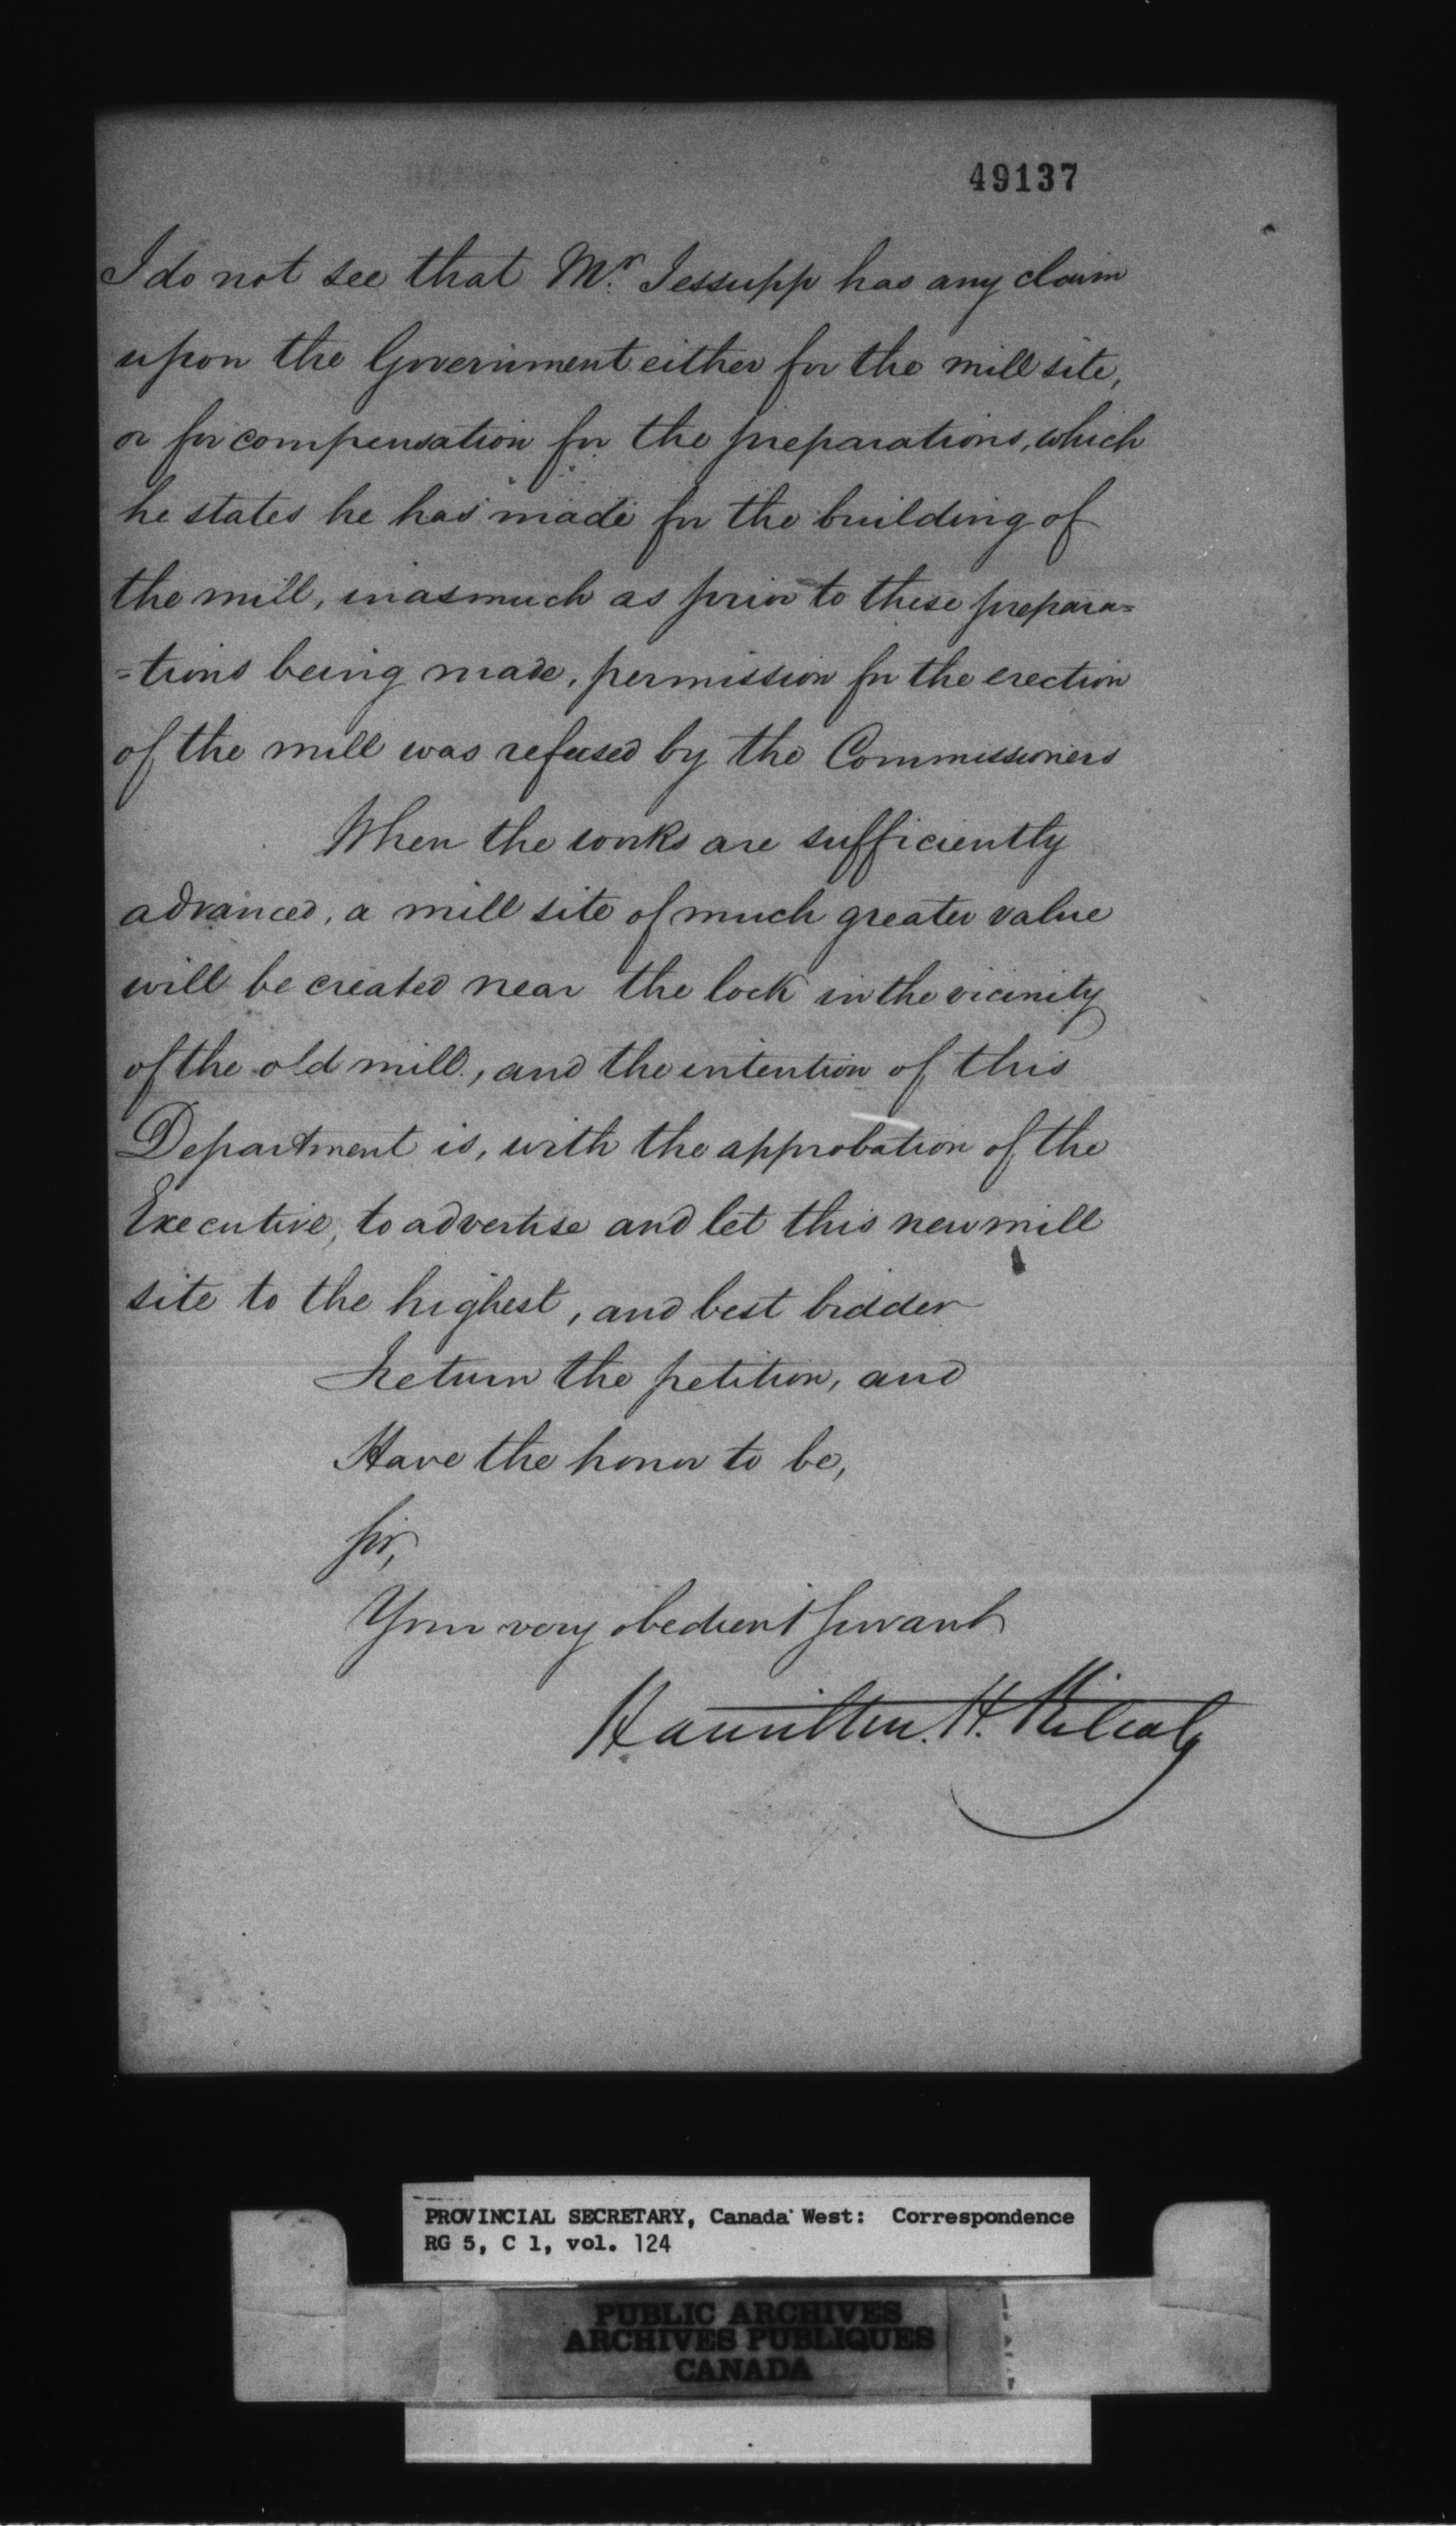 49137
I do not see that Mr. Jessupp has any claim
upon the Government either for the mill site,
or for compensation for the preparations, which
he states he has made for the building of
the mill, inasmuch as prior to these prepara=
=tions being made, permission for the erection
of the mill was refused by the Commissioners
When the works are sufficiently
advanced, a mill site of much greater value
will be created near the lock in the vicinity
of the old mill, and the intention of this
Department is, with the approbation of the
Executive, to advertise and let this new mill
site to the highest, and best bidder
I return the petition, and
Have the honor to be,
Sir,
Your very obedient Servant
Hamilton. H. Killaly
PROVINCIAL SECRETARY, Canada West: Correspondence
RG 5, C 1, vol. 124
PUBLIC ARCHIVES
ARCHIVES PUBLIQUES
CANADA